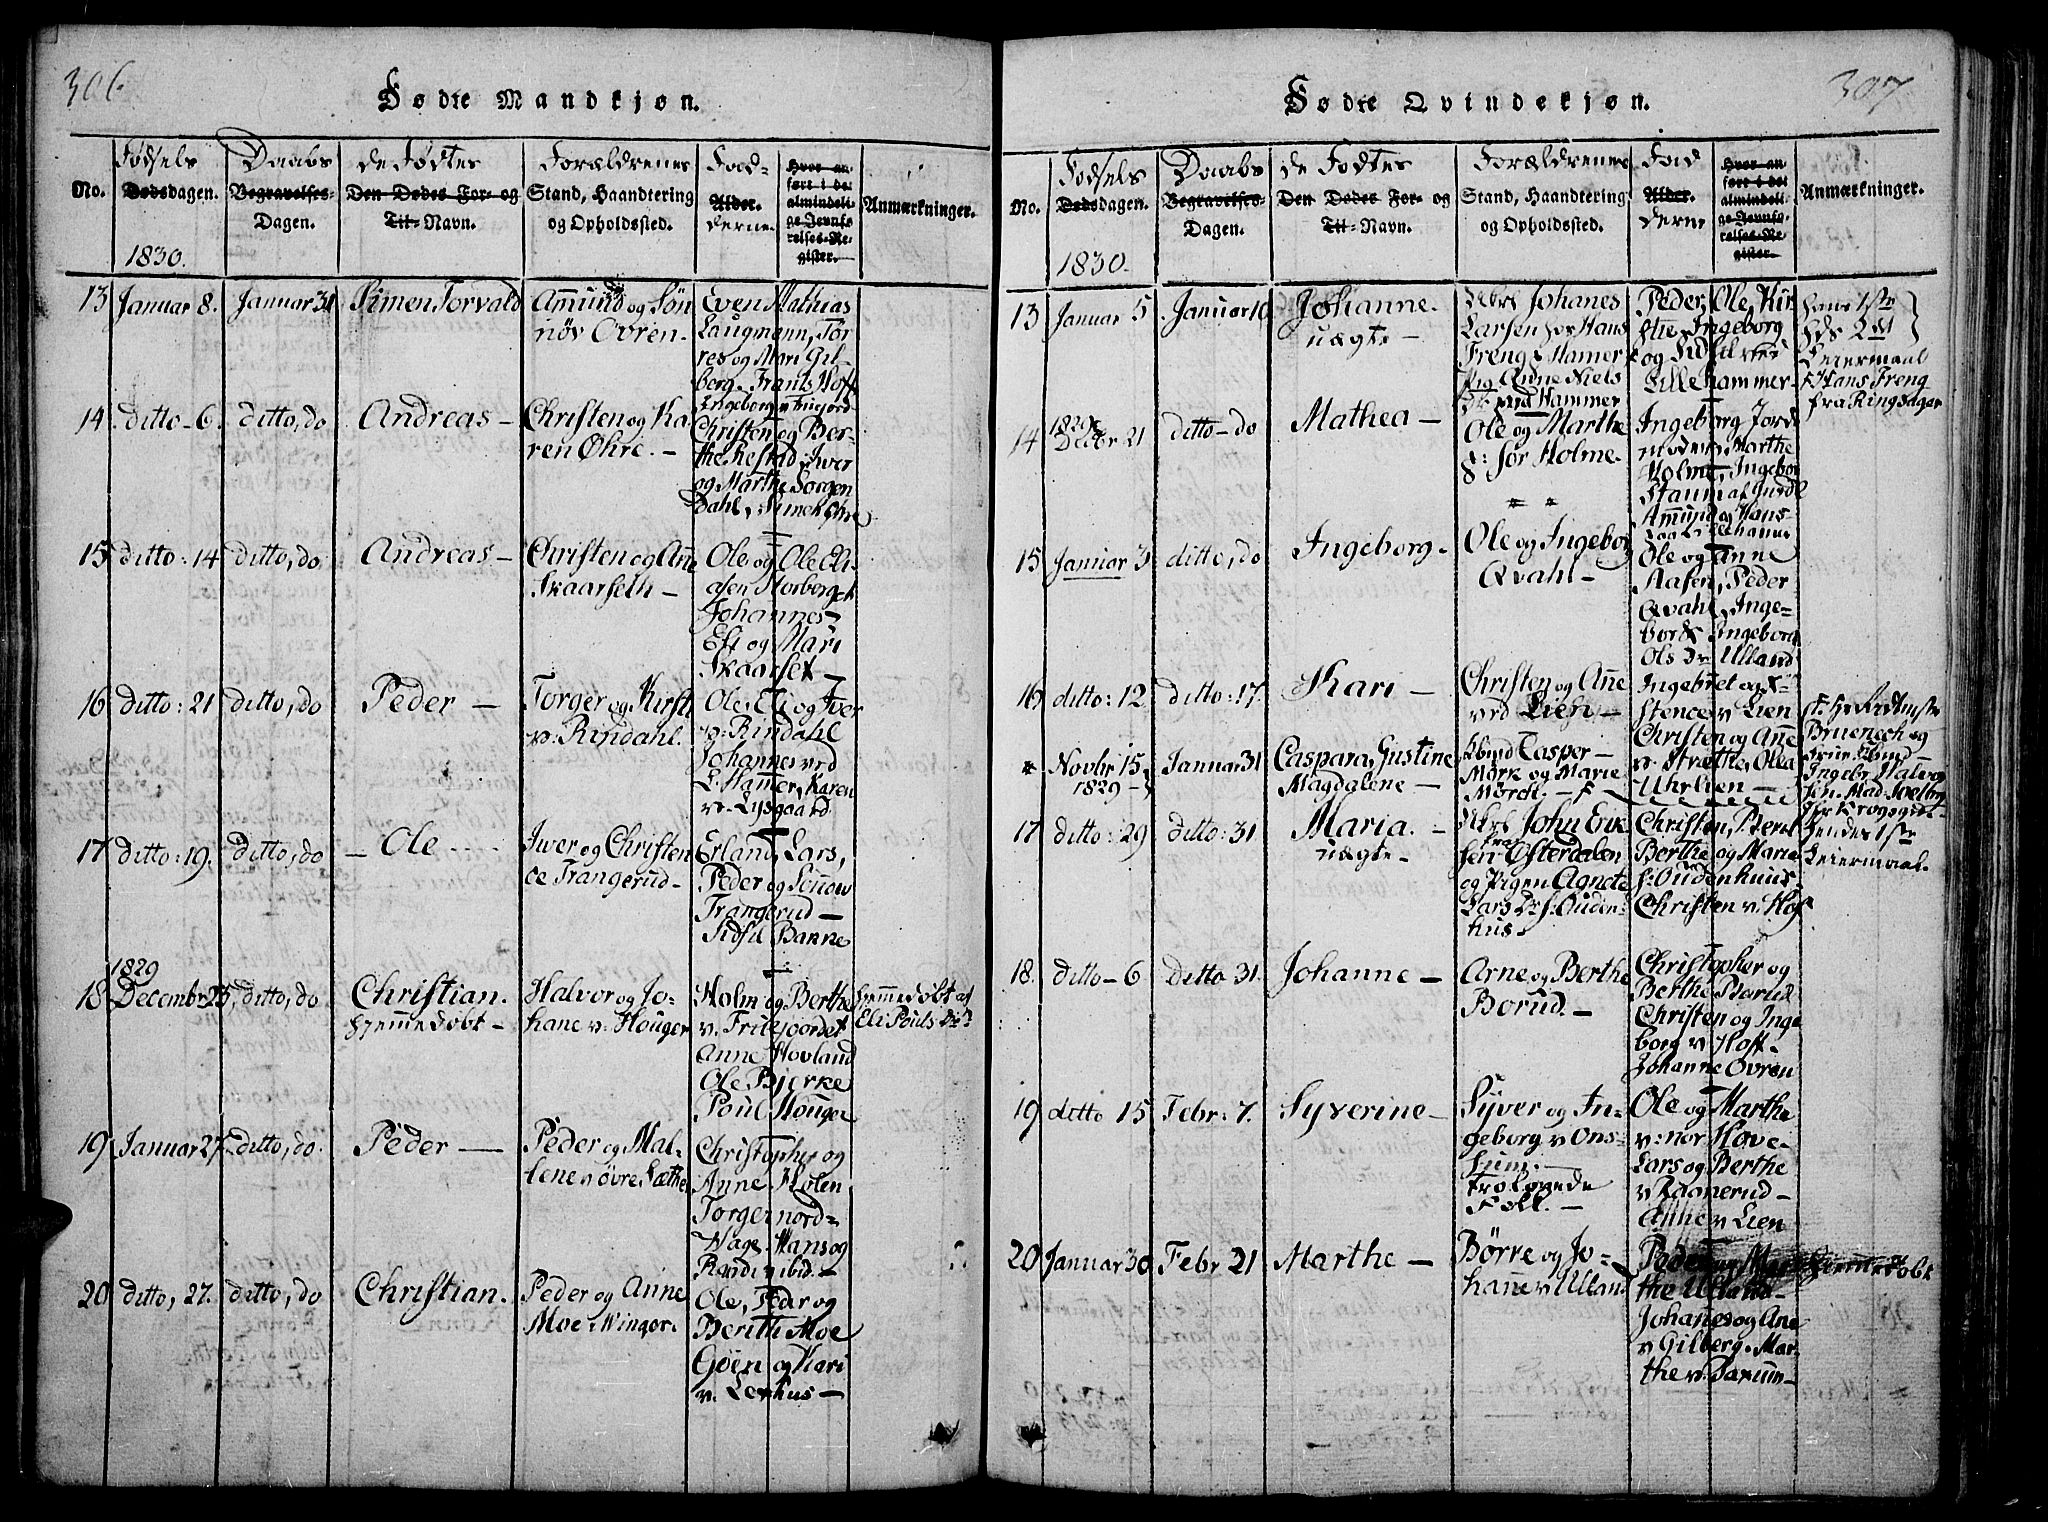 306
Fødte Mandkjøn.
Fødsels
Daabs
de Fødtes
Forældrenes
Fad-
No.
Dødsdagen.
Begravelses-
Dagen.
Den Dødes For- og
Til-Navn.
Stand, Haandtering
og Opholdssted.
Alder.
derne
Hvor an-
ført i de
almindeli-
ge Jevnfø-
relses-Re-
gister.
Anmærkninger.
1830.
13 Januar 8. Januar 31 Simen Torvald
Amund og Søn
nøv Ovren.
Even Mathias
Laugmann, Tor
res og Mari Gil-
berg. Frants Hoff
Ingeborg
14 ditto - 6. ditto, do Andreas -
Christen og Ka
ren Øhre. -
Christen og Ber-
the Iver
og Marthe Sorgen
Dahl, Simen Øhre
15 ditto: 14 ditto, do Andreas -
Christen og Anne
Skaarseth -
Ole og Ole Eli-
asen Storberget
Johannes -
Eft og Mari
Skaarset -
16 ditto: 21 ditto, do Peder -
Torger og Kirsti
v: Rindahl.
Ole, Eli og Iver
v: Rindahl
Johannes ved
L. Hammer, Karen
v. Lysgaard
17 ditto: 19. ditto, do - Ole
Iver og Christen
ce Trangerud -
Erland, Lars,
Peder og Sønnow
Trangerud -
Sidsil Banne
1829
18 Decembr 25, ditto, do Christian.
hjemmedøbt -
Halvor og Jo-
hane v: Houger
Holm og Berthe
v. Friisjordet
Anne Hovland
Ole Bjerke
Poul Houger
hjemmedøbt af
Eli Pouls Dr
19 Januar 27. ditto, do. Peder -
Peder og Mal-
lene v øvre Sæther
Christopher og
Anne Holen
Torger nord-
Hage. Hans og
Randi ibid. -
20 ditto, 27. ditto, do Christian.
Peder og Anne
Moe i Winger.
Ole, Peder og
Berith Moe
Goen og Kari
v. Lerhus -
307
Fødte Qvindekjøn.
Fødsels
Daabs
de Fødtes
Forældrenes
Fad
No.
Dødsdagen.
Begravelses-
Dagen.
Den Dødes For- og
Til-Navn.
Stand, Haandtering
og Opholdssted.
Alder.
derne
Hvor an-
ført i det
almindeli-
ge Jevnfø-
relses-Re-
gister.
Anmærkninger.
1830.
13 Januar 5 Januar 10 Johanne.
uægte -
Johanes
Larsen for Hans
Freng Hamer
Pig Anne Niels
Dr ved Hammer
Peder, Ole, Kir
stie, Ingeborg
og Sidsil
Lillehammer -
hans 1ste
hds 2d
Leiermaal
Hans Freng
fra Ringsager
14 1829 Decbr 21 ditto - do Mathea -
Ole og Marthe
S: Sør Holme.
Ingeborg Jorde
moder, Marthe
Holme, Ingebor
Stanna af Juvdl
Amund og Hans
15 Januar 3 ditto, do Ingeborg -
Ole og Ingeborg
Qvahl -
Ole og Anne
Aasen, Peder
Qvahl, Inge-
bor Ingeborg
Ols Dr Ulland
16 ditto: 12 ditto: 17. Kari -
Christen og Anne
ved Lien -
Ingebret og
stence v Lien
Novbr 15 Januar 31 Caspara, Gustine
1829 - Magdalene -
Casper -
Mørk og Marie
Mørch. -
Christen og Anne
v. Stræthe, Olea
Uhrlien -
Brueneck og
Ingebr Halvor
1ste
Leiermaal.
17 ditto: 29 ditto: 31 Maria. -
uægte -
John Erik
sen fra Østerdalen
og Pigen Agnete
Lars Dr f: Ouden
hus -
Christen, Peter
Berthe og Marie
f: Oudenhuus.
Christen v: Hof
18. ditto - 6 ditto 31. Johanne -
Arne og Berthe
Borud. -
Christopher og
Berthe Borud
Christen og Inge
borg v Hoff -
Johanne Ovren
19 ditto 15 Febr: 7. Syverine -
Syver og In-
geborg v Ons-
Trolovede
Folk. -
Ole og Marthe
v: nor Hove -
Lars og Berthe
v Raanerud -
Anne v Lien
20 Januar 30 Febr 21 Marthe -
Børre og Jo-
hane v Ulland
Peder og Mar
the Ulland -
Johanes og Ane
v Gilberg. Mar-
the v: Barum -
hjemmedøbt